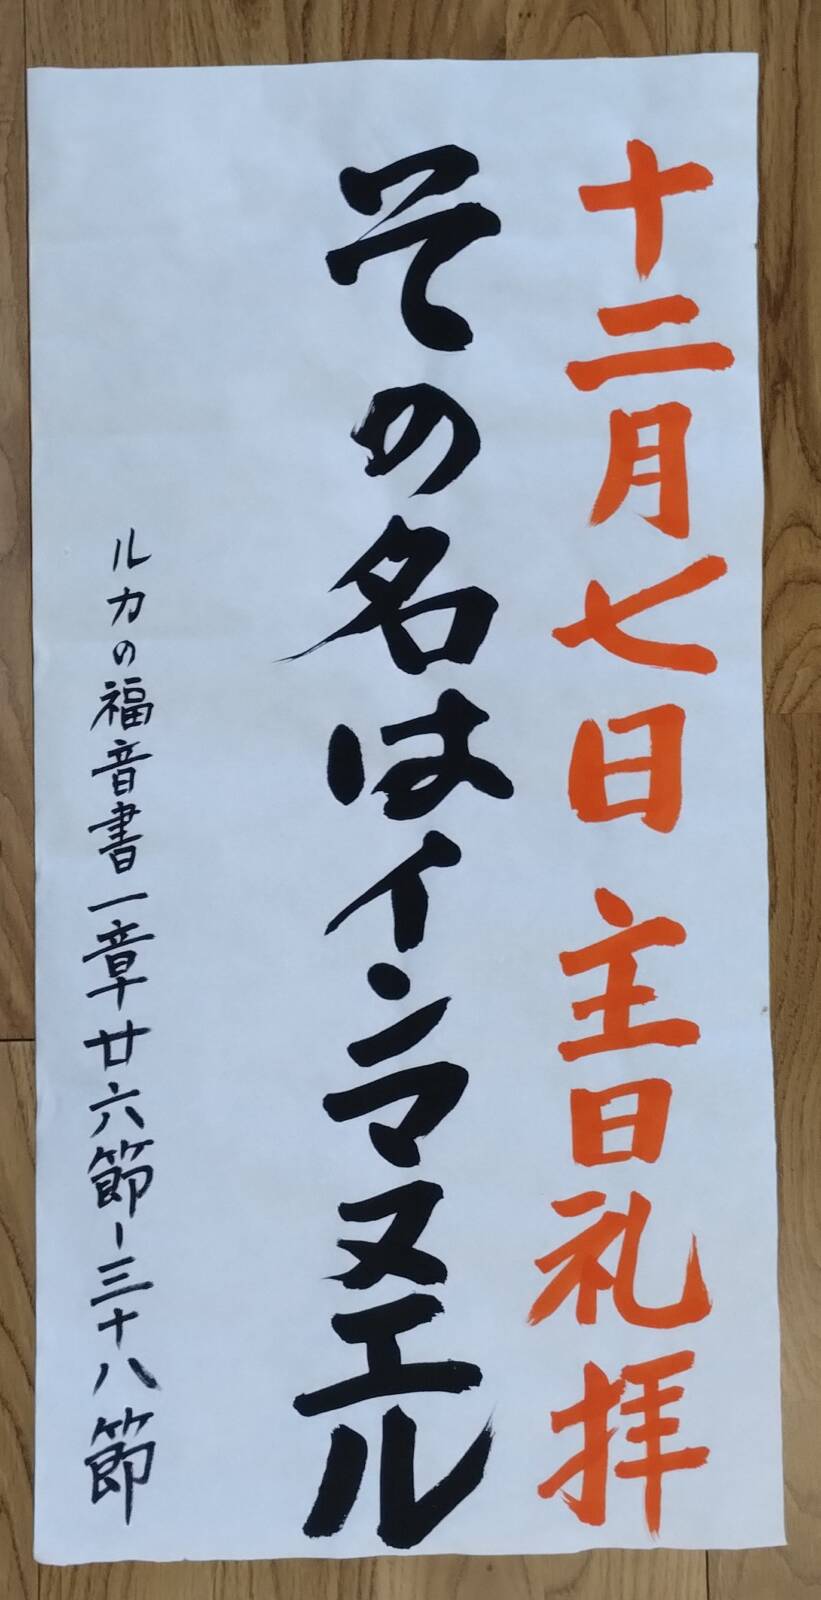 十二月七日 主日礼拝
その名はインマヌエル
ルカの福音書一章廿六節ー三十八節